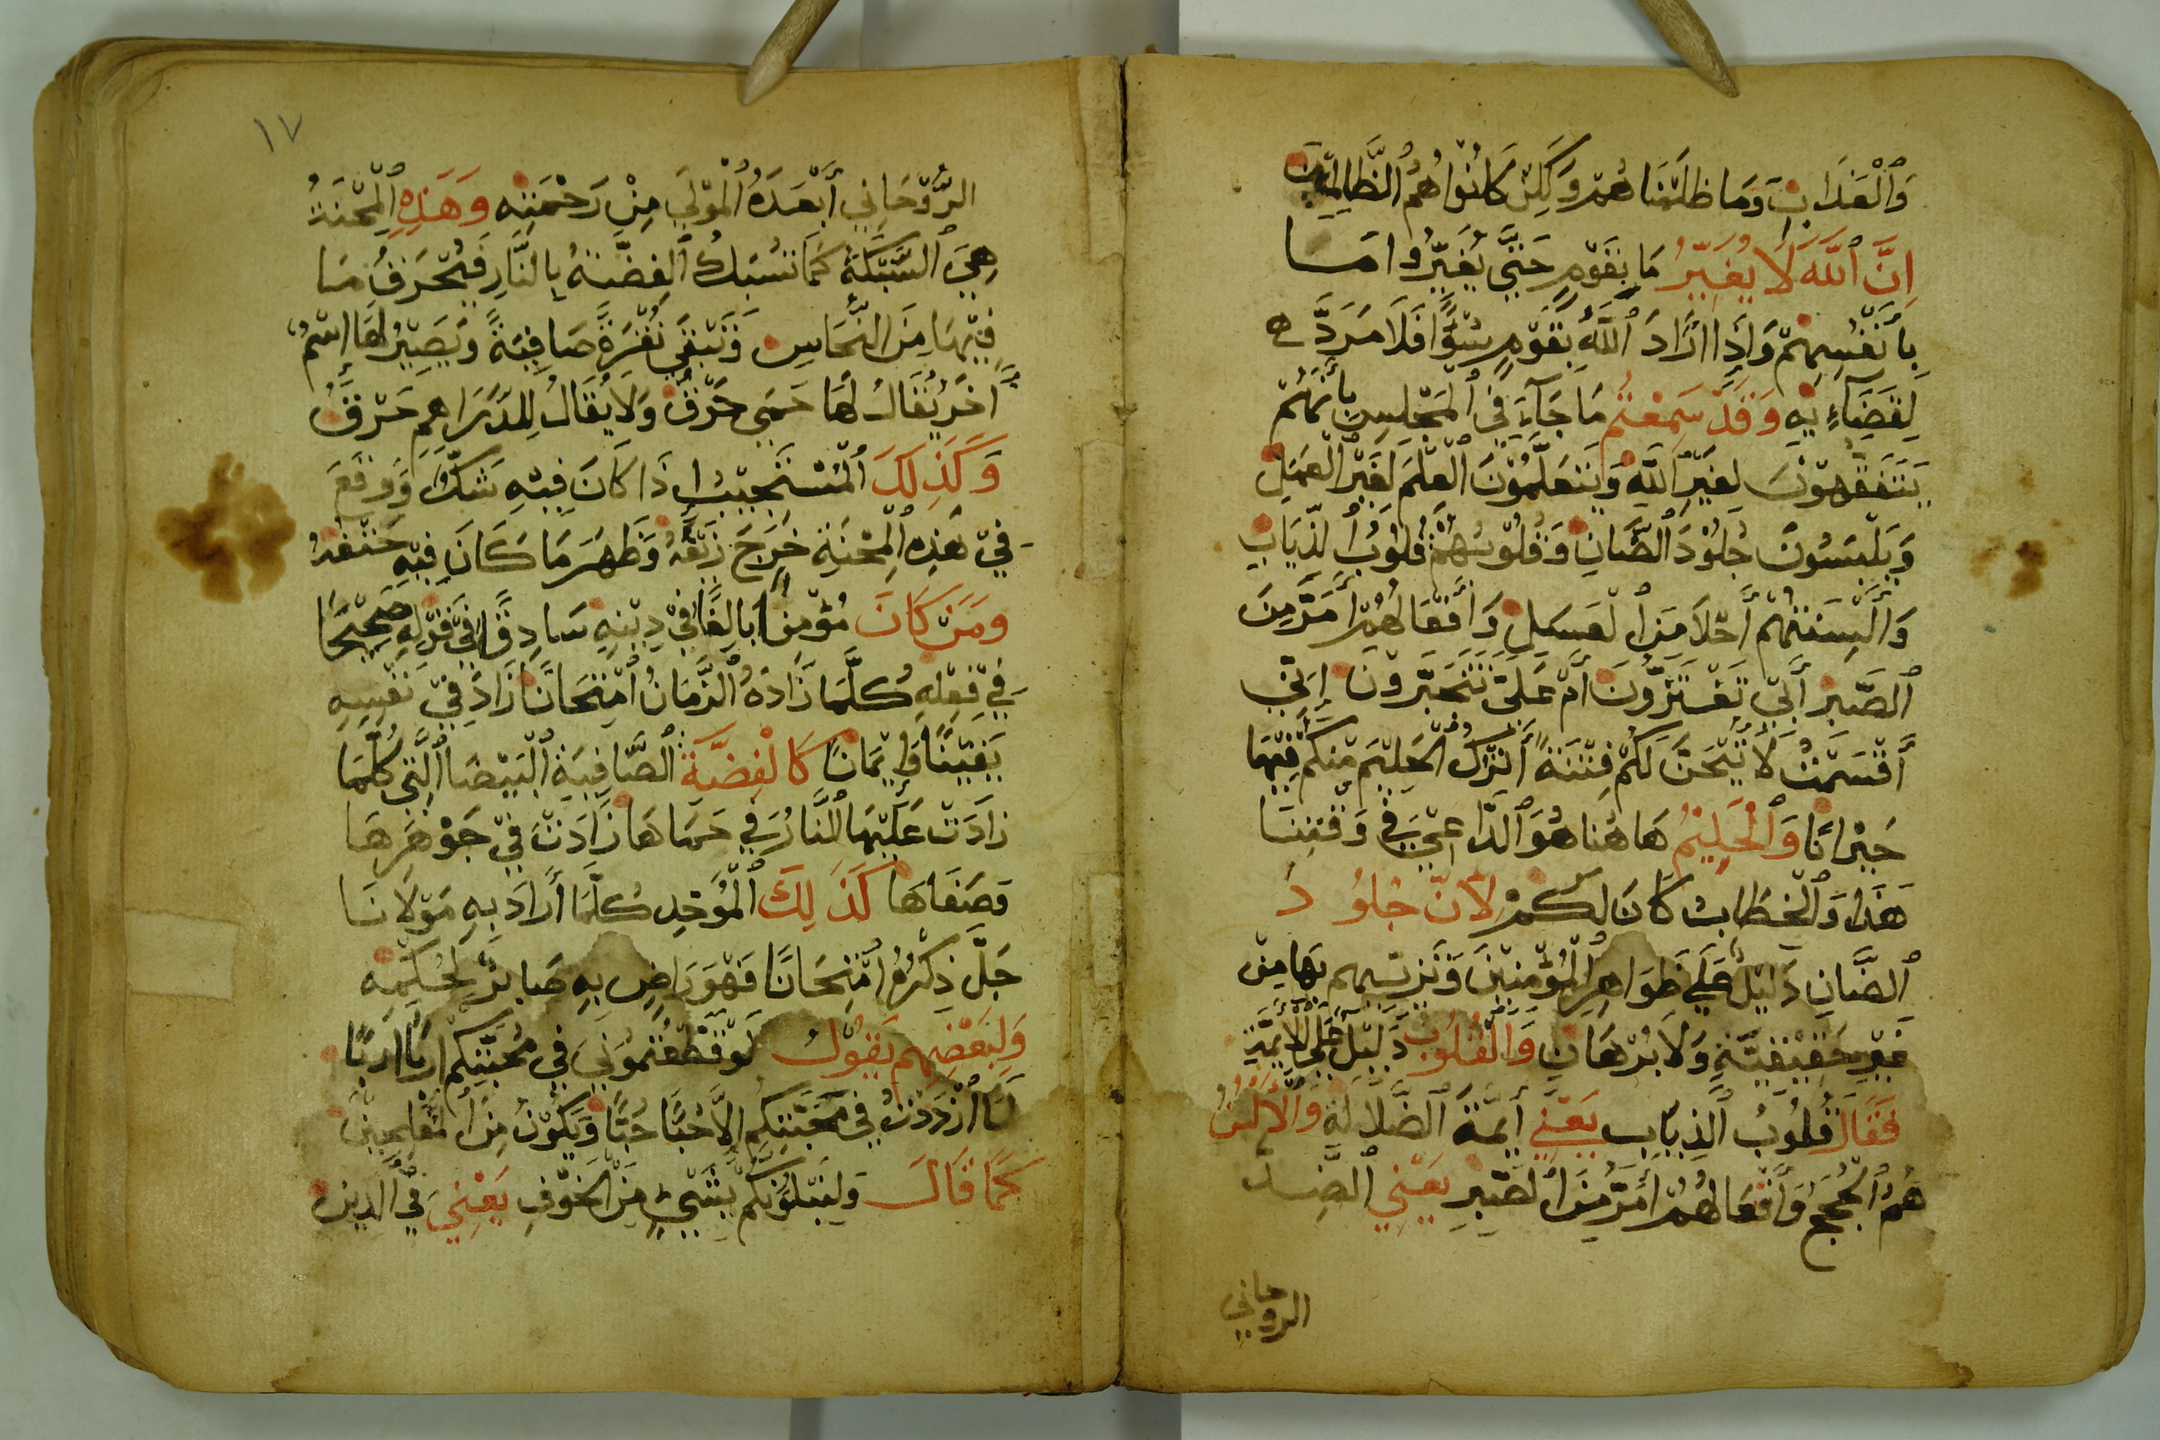 وَٱلْعَذَابِ وَمَا ظَلَمْنَاهُمْ وَلَكِنْ كَانُوْا هُمُ ٱلظَّالِمِيْنَ
اِنَّ ٱللَّهَ لَا يُغَيِّرُ مَا بِقَوْمٍ حَتَّى يُغَيِّرُوا مَا
بِأَنْفُسِهِمْ وَإِذَا أَرَادَ ٱللَّهُ بِقَوْمٍ سُوْءًا فَلَا مَرَدَّ
لِقَضَآءِيِهِ وَقَدْ سَمِعْتُمْ مَا جَآءَ فِي ٱلْمَجْلِسِ بِأَنَّهُمْ
يَتَفَقَّهُوْنَ لِغَيْرِ ٱللَّهِ وَيَتَعَلَّمُوْنَ ٱلْعِلْمَ لِغَيْرِ ٱلْعَمَلِ
وَيَلْبَسُوْنَ جُلُوْدَ ٱلضَّانِ وَقُلُوْبُهُمْ قُلُوْبُ ٱلذِّيَابِ
وَأَلْسِنَتُهُمْ أَحْلَا مِنَ ٱلْعَسَلِ وَأَفْعَالُهُمْ أَمَرُّ مِنَ
ٱلصَّبِرِ أَبِيْ تَغْتَرُّوْنَ أَمْ عَلَيَّ تَتَجَبَّرُوْنَ إِنِّي
أَقْسَمْتُ لَأُتِيْحَنَّ لَكُمْ فِتْنَةً أَتْرُكُ ٱلْحَلِيْمَ مِنْكُمْ فِيْهَا
حَيْرَانًا وَٱلْحَلِيْمُ هَاهُنَا هُوَ ٱلدَّاعِيْ فِي وَقْتِنَا
هَذَا وَٱلْخِطَابُ كَانَ لَكُمْ لِأَنَّ جُلُوْدَ
ٱلضَّانِ دَلِيْلٌ عَلَي ظَوَاهِرِ ٱلْمُؤْمِنِيْنَ وَتَزَيِّيْهِم بِهَا مِنْ
غَيْرِ حَقِيْقِيَّةٍ وَلَا بُرْهَانٍ وَٱلْقُلُوْبُ دَلِيْلٌ عَلَي ٱلْأَيِمَّةِ
فَقَالَ قُلُوْبُ ٱلذِّيَابِ يَعْنِي أَيِمَّةَ ٱلضَّلَالَةِ وَٱلْأَلْسُنُ
هُمُ ٱلْحُجَجُ وَأَفْعَالُهُمْ أَمَرُّ مِنَ ٱلصَّبِرِ يَعْنِي ٱلضِّدَّ
الروحاني
١٧
الرُّوْحَانِي أَبْعَدَهُ ٱلْمَوْلَي مِنْ رَحْمَتِهِ وَهَذِهِ ٱلْمِحْنَةُ
هِيَ ٱلسَّبْكَةُ كَمَا تُسْبَكُ ٱلْفِضَّةُ بِالنَّارِ فَيُحْرَقُ مَا
فِيْهَا مِنَ النُّحَاسِ وَتَبْقَي نُقْرَةً صَافِيَةً وَيَصِيْرُ لَهَا اسْمٌ
آخَرُ يُقَالُ لَهَا حَمَي حَرْقٍ وَلَا يُقَالُ لِلدَّرَاهِمِ حَرْقٌ
وَكَذَلِكَ ٱلْمُسْتَجِيْبُ إِذَا كَانَ فِيْهِ شَكٌّ وَوَقَعَ
فِيْ هَذِهِ ٱلْمِحْنَةِ خَرَجَ زَيْفُهُ وَظَهَرَ مَا كَانَ فِيْهِ
وَمَنْ كَانَ مُؤْمِنًا بَالِغًا فِيْ دِيْنِهِ سَادِقًا فِيْ قَوْلِهِ صَحِيْحًا
فِيْ فِعْلِهِ كُلَّمَا زَادَهُ ٱلزَّمَانُ ٱمْتِحَانًا زَادَ فِيْ نَفْسِهِ
يَقِيْنًا وَإِيْمَانًا كَالْفِضَّةِ ٱلصَّافِيَةِ ٱلْبَيْضَا ٱلَّتِي كُلَّمَا
زَادَتْ عَلَيْهَا ٱلنَّارُ فِي حَمَاهَا زَادَتْ فِيْ جَوْهَرِهَا
وَصَفَاهَا كَذَلِكَ ٱلْمُوَحِّدِ كُلَّمَا أَرَادَ بِهِ مَوْلَانَا
جَلَّ ذِكْرُهُ ٱمْتِحَانًا فَهُوَ رَاضٍ بِهِ صَابِرٌ لِحُكْمِهِ
وَلِبَعْضِهِم يَقُوْلُ لَوْ قَطَّعْتُمُوْنِي فِي مَحَبَّتِكُم اِرْبًا اِرْبًا
مَا ٱزْدَدْتُ فِي مَحَبَّتِكُم إِلَّا حُبًّا حُبًّا وَيَكُوْنُ مِنَ ٱلْمُفْلِحِيْنَ
كَمَا قَالَ وَلَنَبْلُوَنَّكُمْ بِشَيْءٍ مِنَ ٱلْخَوْفِ يَعْنِيَ فِي ٱلدِيْنِ